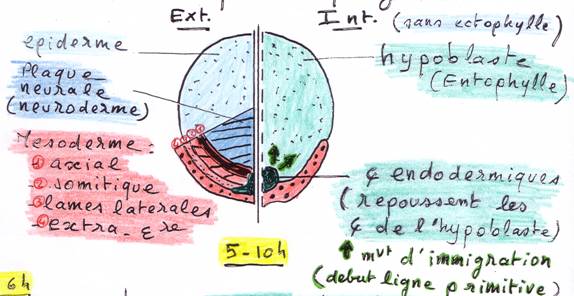 Ext. Int. (sans ectophylle)
épiderme
Plaque
neurale
(neuroderme)
Mesoderme :
① axial
② somitique
③ lames laterales
④ extra-ç re
hypoblaste
(Entophylle)
¢ endodermiques
(repoussent les
¢ de l'hypoblaste)
↑ mvt d'immigration
(debut ligne primitive)
5-10h
6h